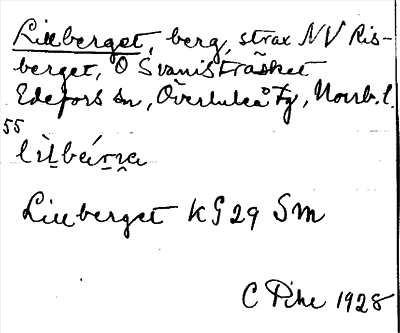 Lillberget, berg, strax NV Ris-
berget, O Svanisträsket
Edefors sn, Överluleå Fg, Norrb. l.
55
Lillberget KG 29 SM
C Pihl 1928